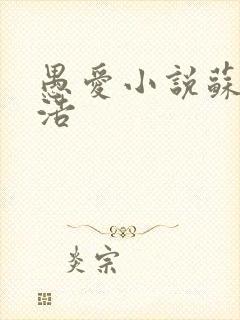 愚愛小說蘇
活
炎宗